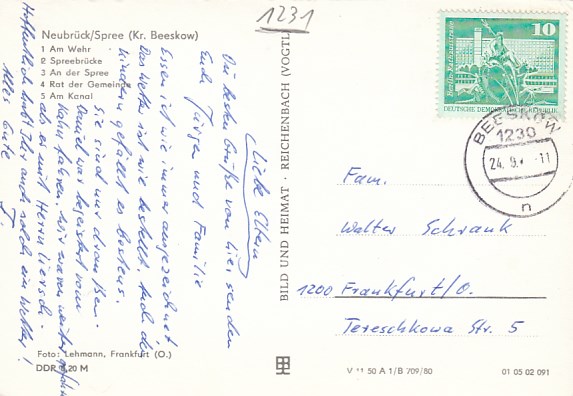 1231
Neubrück/Spree (Kr. Beeskow)
1 Am Wehr
2 Spreebrücke
3 An der Spree
4 Rat der Gemeinde
5 Am Kanal
Liebe Eltern
Die besten Grüße von hier senden
Euch Jürgen und Familie
Essen ist wie immer ausgezeichnet
Das Wetter ist wie bestellt. Auch den
Kindern gefällt es bestens.
Sie sind nur draußen.
Daniel war begeistert vom
Kahn fahren. Wir waren weiter gefahren
als es mit Herrn
Hoffentlich habt Ihr auch noch ein Wetter!
Alles Gute
J.
Foto: Lehmann, Frankfurt (O.)
DDR 0,20 M
BILD UND HEIMAT · REICHENBACH (VOGTL
V 11 50 A 1/B 709/80
01 05 02 091
10
DEUTSCHE DEMOKRATISCHE REPUBLIK
BEESKOW
1230
24. 9. -11
n
Fam.
Walter Schrank
1200 Frankfurt/O.
Tereschkowa Str. 5